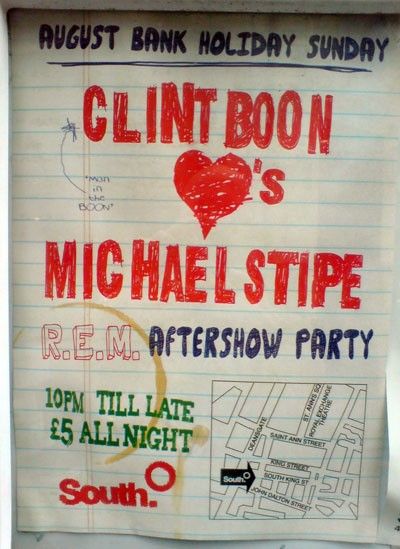 AUGUST BANK HOLIDAY SUNDAY
CLINT BOON
"MAN
in
the
BOON"
'S
MICHAEL STIPE
R.E.M. AFTERSHOW PARTY
10PM TILL LATE
£5 ALL NIGHT
South.
DEANSGATE
ST. ANN'S SQ
ROYAL EXCHANGE
THEATRE
SAINT ANN STREET
KING STREET
South.
SOUTH KING ST
JOHN DALTON STREET